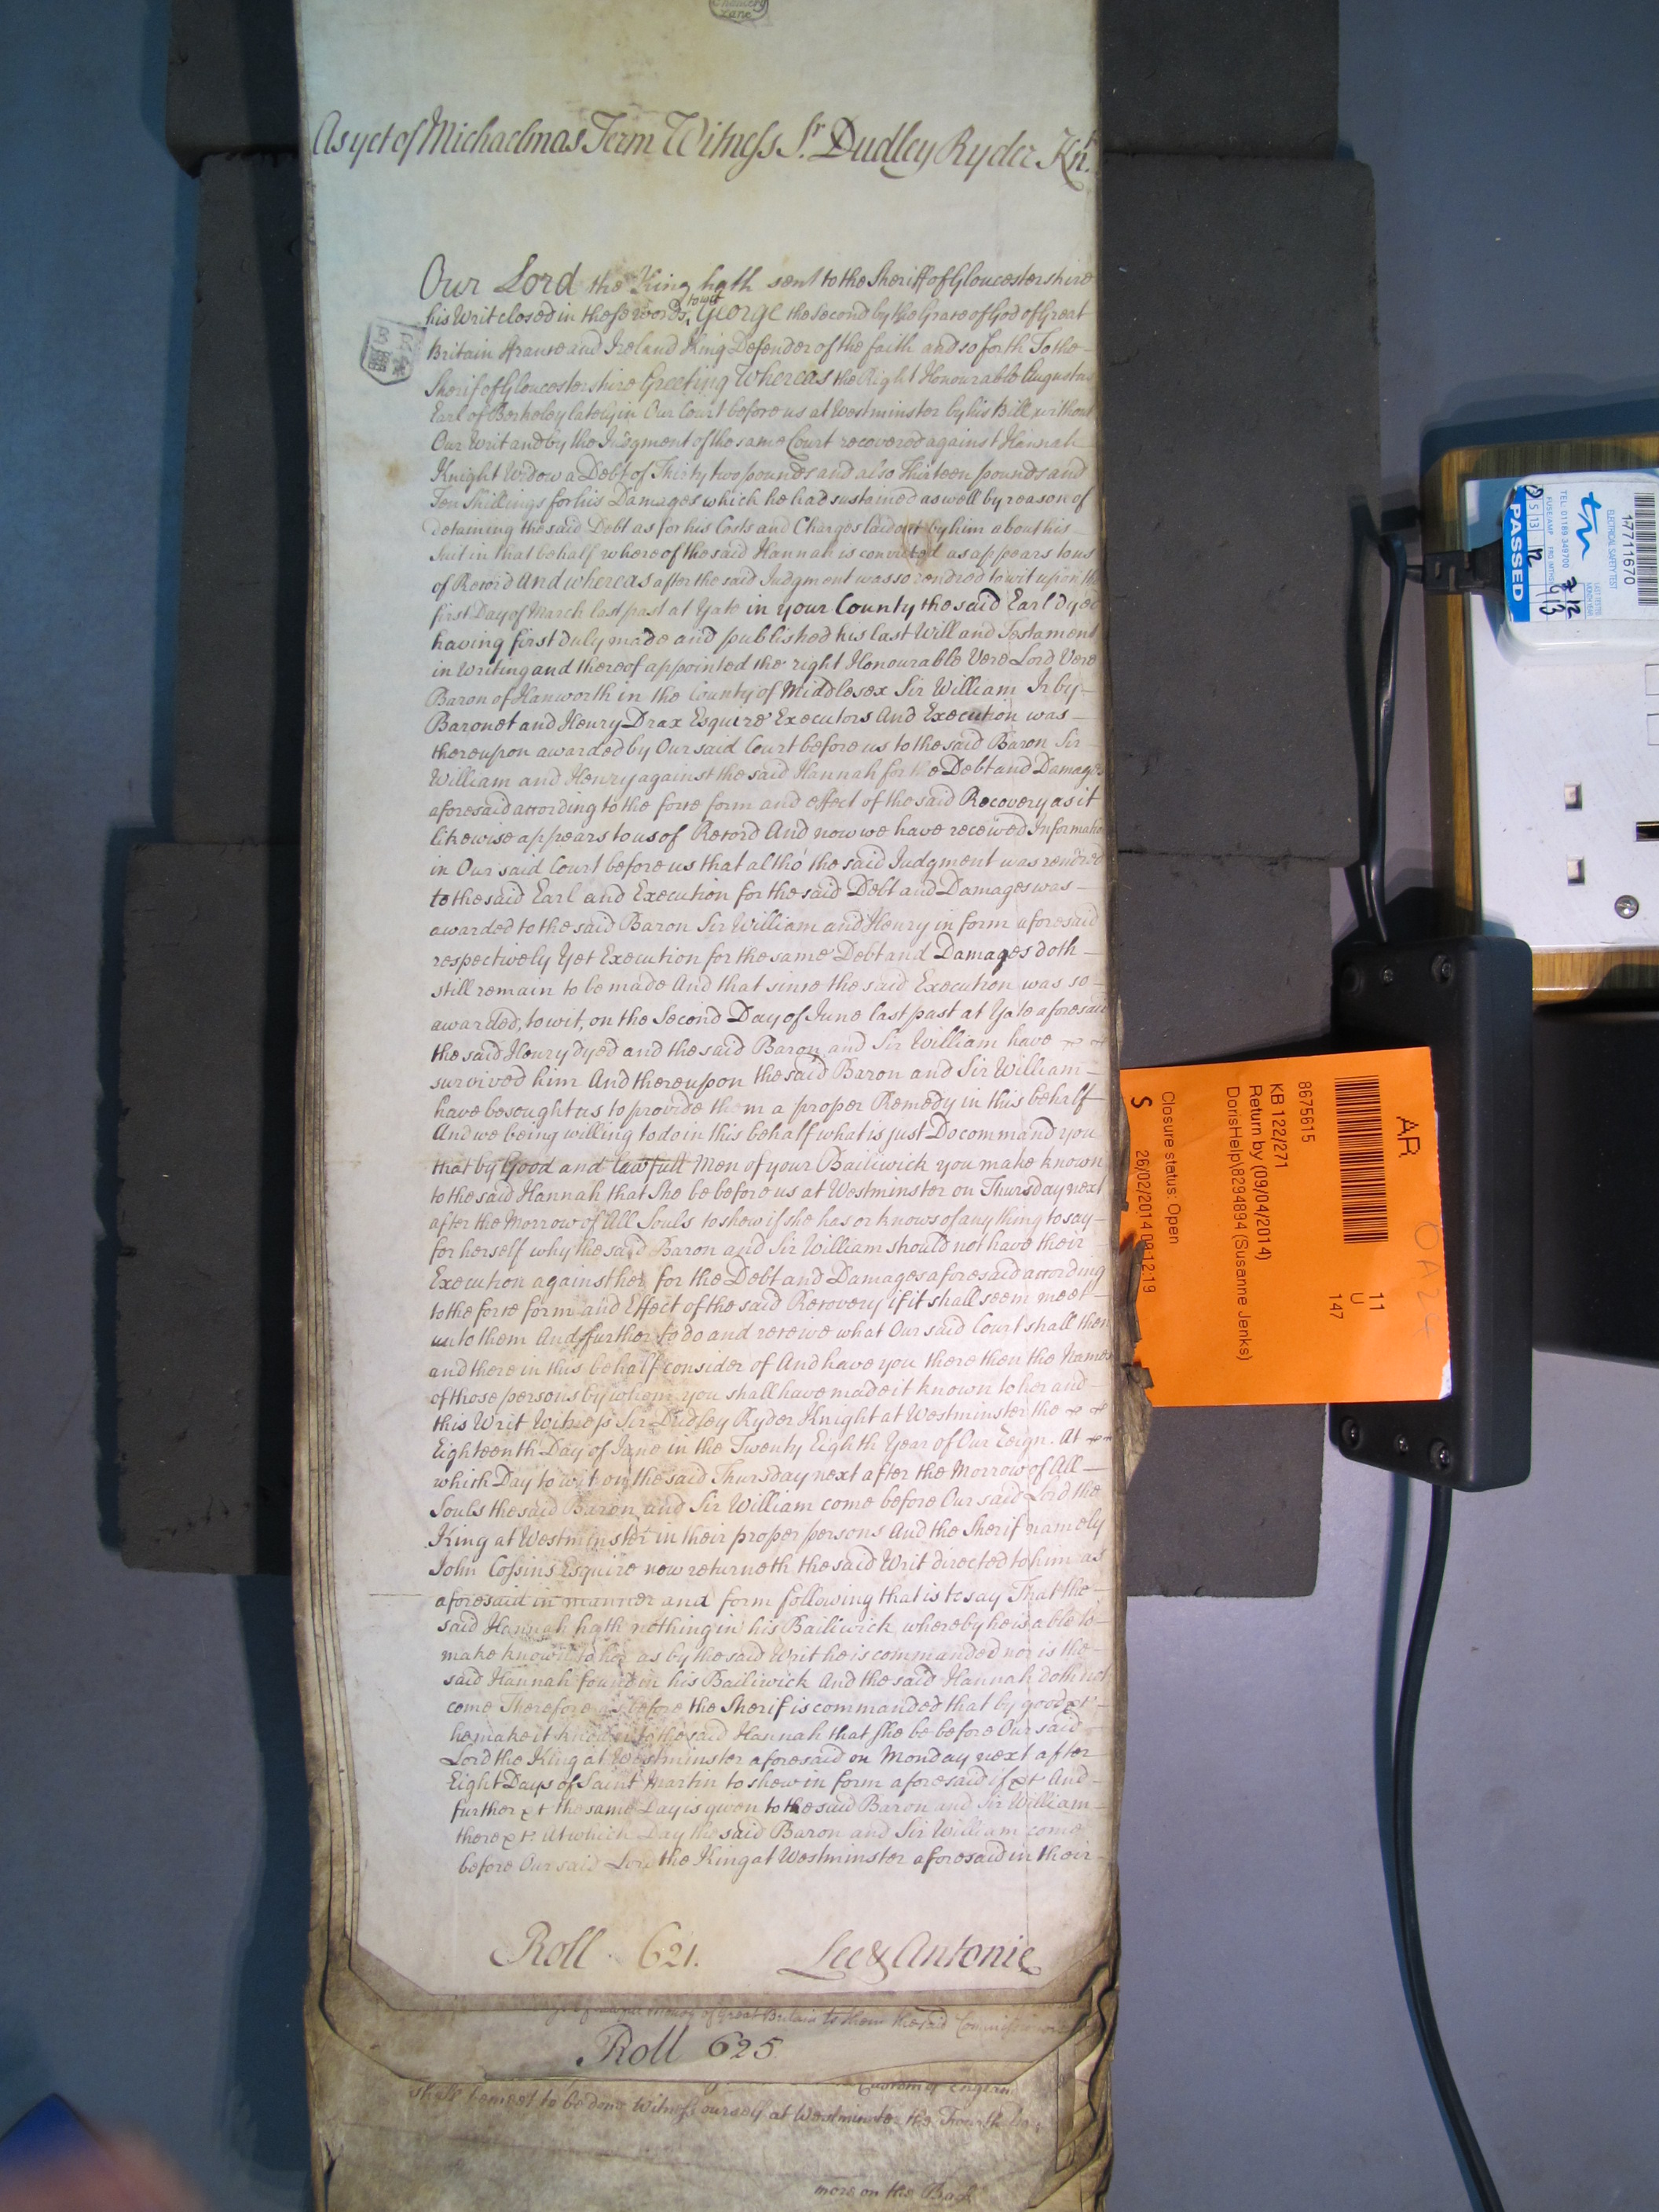 Chancery
Lane
As yet of Michaelmas Term Witness Sr. Dudley Ryder Knt.
Our Lord the King hath sent to the Sheriff of Gloucestershire
his Writ closed in these words, to wit George the Second by the Grace of God of Great
Britain France and Ireland King Defender of the faith and so forth To the
Sherif of Gloucestershire Greeting Whereas the Right Honourable Augustus
Earl of Berkeley lately in Our Court before us at Westminster by his Bill without
Our Writ and by the Judgment of the same Court recovered against Hannah
Knight Widow a Debt of Thirty two pounds and also Thirteen pounds and
Ten Shillings for his Damages which he had sustained as well by reason of
detaining the said Debt as for his Costs and Charges laid out by him about his
Suit in that behalf whereof the said Hannah is convicted as appears to us
of Record And whereas after the said Judgment was so rendred to wit upon the
first Day of March last past at Yate in your County the said Earl dyed
having first duly made and published his last Will and Testament
in Writing and thereof appointed the right Honourable Vere Lord Vere
Baron of Hanworth in the County of Middlesex Sir William Irby
Baronet and Henry Drax Esquire Executors And Execution was
thereupon awarded by Our said Court before us to the said Baron Sir
William and Henry against the said Hannah for the Debt and Damages
aforesaid according to the force form and effect of the said Recovery as it
likewise appears to us of Record And now we have received Informatio
in Our said Court before us that altho' the said Judgment was rendred
to the said Earl and Execution for the said Debt and Damages was
awarded to the said Baron Sir William and Henry in form aforesaid
respectively Yet Execution for the same Debt and Damages doth
still remain to be made And that since the said Execution was so
awarded, to wit, on the Second Day of June last past at Yate aforesaid
the said Henry dyed and the said Baron and Sir William have
survived him And thereupon the said Baron and Sir William
have besought us to provide them a proper Remedy in this behalf
And we being willing to do in this behalf what is just Do command you
that by Good and lawfull Men of your Bailiwick you make known
to the said Hannah that She be before us at Westminster on Thursday next
after the Morrow of All Souls to shew if she has or knows of any thing to say
for herself why the said Baron and Sir William should not have their
Execution against her for the Debt and Damages aforesaid according
to the force form and Effect of the said Recovery if it shall seem meet
unto them And further to do and receive what Our said Court shall then
and there in this behalf consider of And have you there then the Names
of those persons by whom you shall have made it known to her and
this Writ Witness Sir Dudley Ryder Knight at Westminster the
Eighteenth Day of June in the Twenty Eighth Year of Our Reign. At
which Day to wit on the said Thursday next after the Morrow of All
Souls the said Baron and Sir William come before Our said Lord the
King at Westminster in their proper persons And the Sherif namely
John Cossins Esquire now returneth the said Writ directed to him as
aforesaid in manner and form following that is to say That the
said Hannah hath nothing in his Bailiwick whereby he is able to
make known to her as by the said Writ he is commanded nor is the
said Hannah found in his Bailiwick And the said Hannah doth not
come Therefore as before the Sherif is commanded that by good &c
he make it known to the said Hannah that She be before Our said
Lord the King at Westminster aforesaid on Monday next after
Eight Days of Saint Martin to shew in form aforesaid if &c And
further &c the same Day is given to the said Baron and Sir William
there &c At which Day the said Baron and Sir William come
before Our said Lord the King at Westminster aforesaid in their
Roll 621.
Lee & Antonie
money of Great Britain to them the said Commissioners
Roll 625
Custom of England
shall be meet to be done Witness ourself at Westminster the Fourth
more on the Back
AR
11
U
147
8675615
KB 122/271
Return by (09/04/2014)
DorisHelp\8294894 (Susanne Jenks)
Closure status: Open
S
26/02/2014 09:12:19
1771 1670
ELECTRICAL SAFETY TEST
TEL: 0118
PASSED